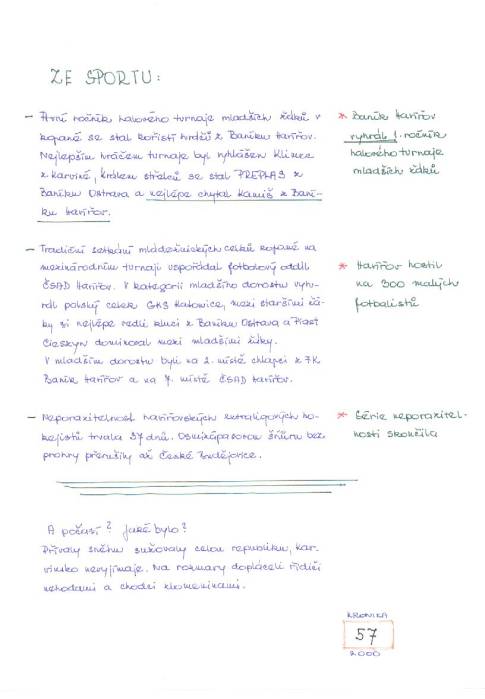 ZE SPORTU:
- První ročník halového turnaje mladších žáků v
kopané se stal kořistí hráčů z Baníku Havířov.
Nejlepším hráčem turnaje byl vyhlášen Klimea
z Karviné, králem střelců se stal PREPLAS z
Baníku Ostrava a nejlépe chytal Kamiš z Baní-
ku Havířov.
* Baník Havířov
vyhrál 1. ročník
halového turnaje
mladších žáků
- Tradiční setkání mládežnických celků kopané na
mezinárodním turnaji uspořádal fotbalový oddíl
ČSAD Havířov. V kategorii mladšího dorostu vyhr-
rál polský celek GKS Katowice, mezi staršími žá-
ky si nejlépe vedli kluci z Baníku Ostrava a Piast
Cieszyn dominoval mezi mladšími žáky.
V mladším dorostu byli na 2. místě chlapci z FK
Baník Havířov a na 7. místě ČSAD Havířov.
* Havířov hostil
na 300 malých
fotbalistů
- Neporazitelnost havířovských extraligových ho-
kejistů trvala 37 dnů. Osmizápasovou šňůru bez
prohry přerušily až České Budějovice.
* Série neporazitel-
nosti skončila
A počasí? Jaké bylo?
Přívaly sněhu sužovaly celou republiku, Kar-
vinsko nevyjímaje. Na rozmary dopláceli řidiči
nehodami a chodci zlomeninami.
KRONIKA
57
2000